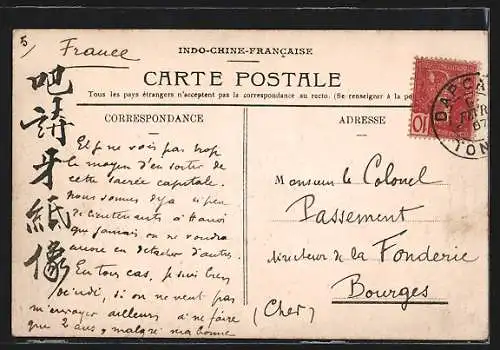 5)
France
INDO-CHINE-FRANÇAISE
CARTE POSTALE
Tous les pays étrangers n'acceptent pas la correspondance au recto. (Se renseigner à la
CORRESPONDANCE
ADRESSE
吧 講 牙 紙 像
Et je ne vois pas trop
le moyen d'en sortir de
cette sacrée capitale.
Nous sommes déjà si peu
de lieutenants à Hanoi
que jamais on ne voudra
encore en détacher d'autres.
En tous cas, je suis bien
décidé, si on ne veut pas
m'envoyer ailleurs à ne faire
que 2 ans, malgré ma bonne
Monsieur le Colonel
Passement
directeur de la Fonderie
Bourges
(Cher)
10